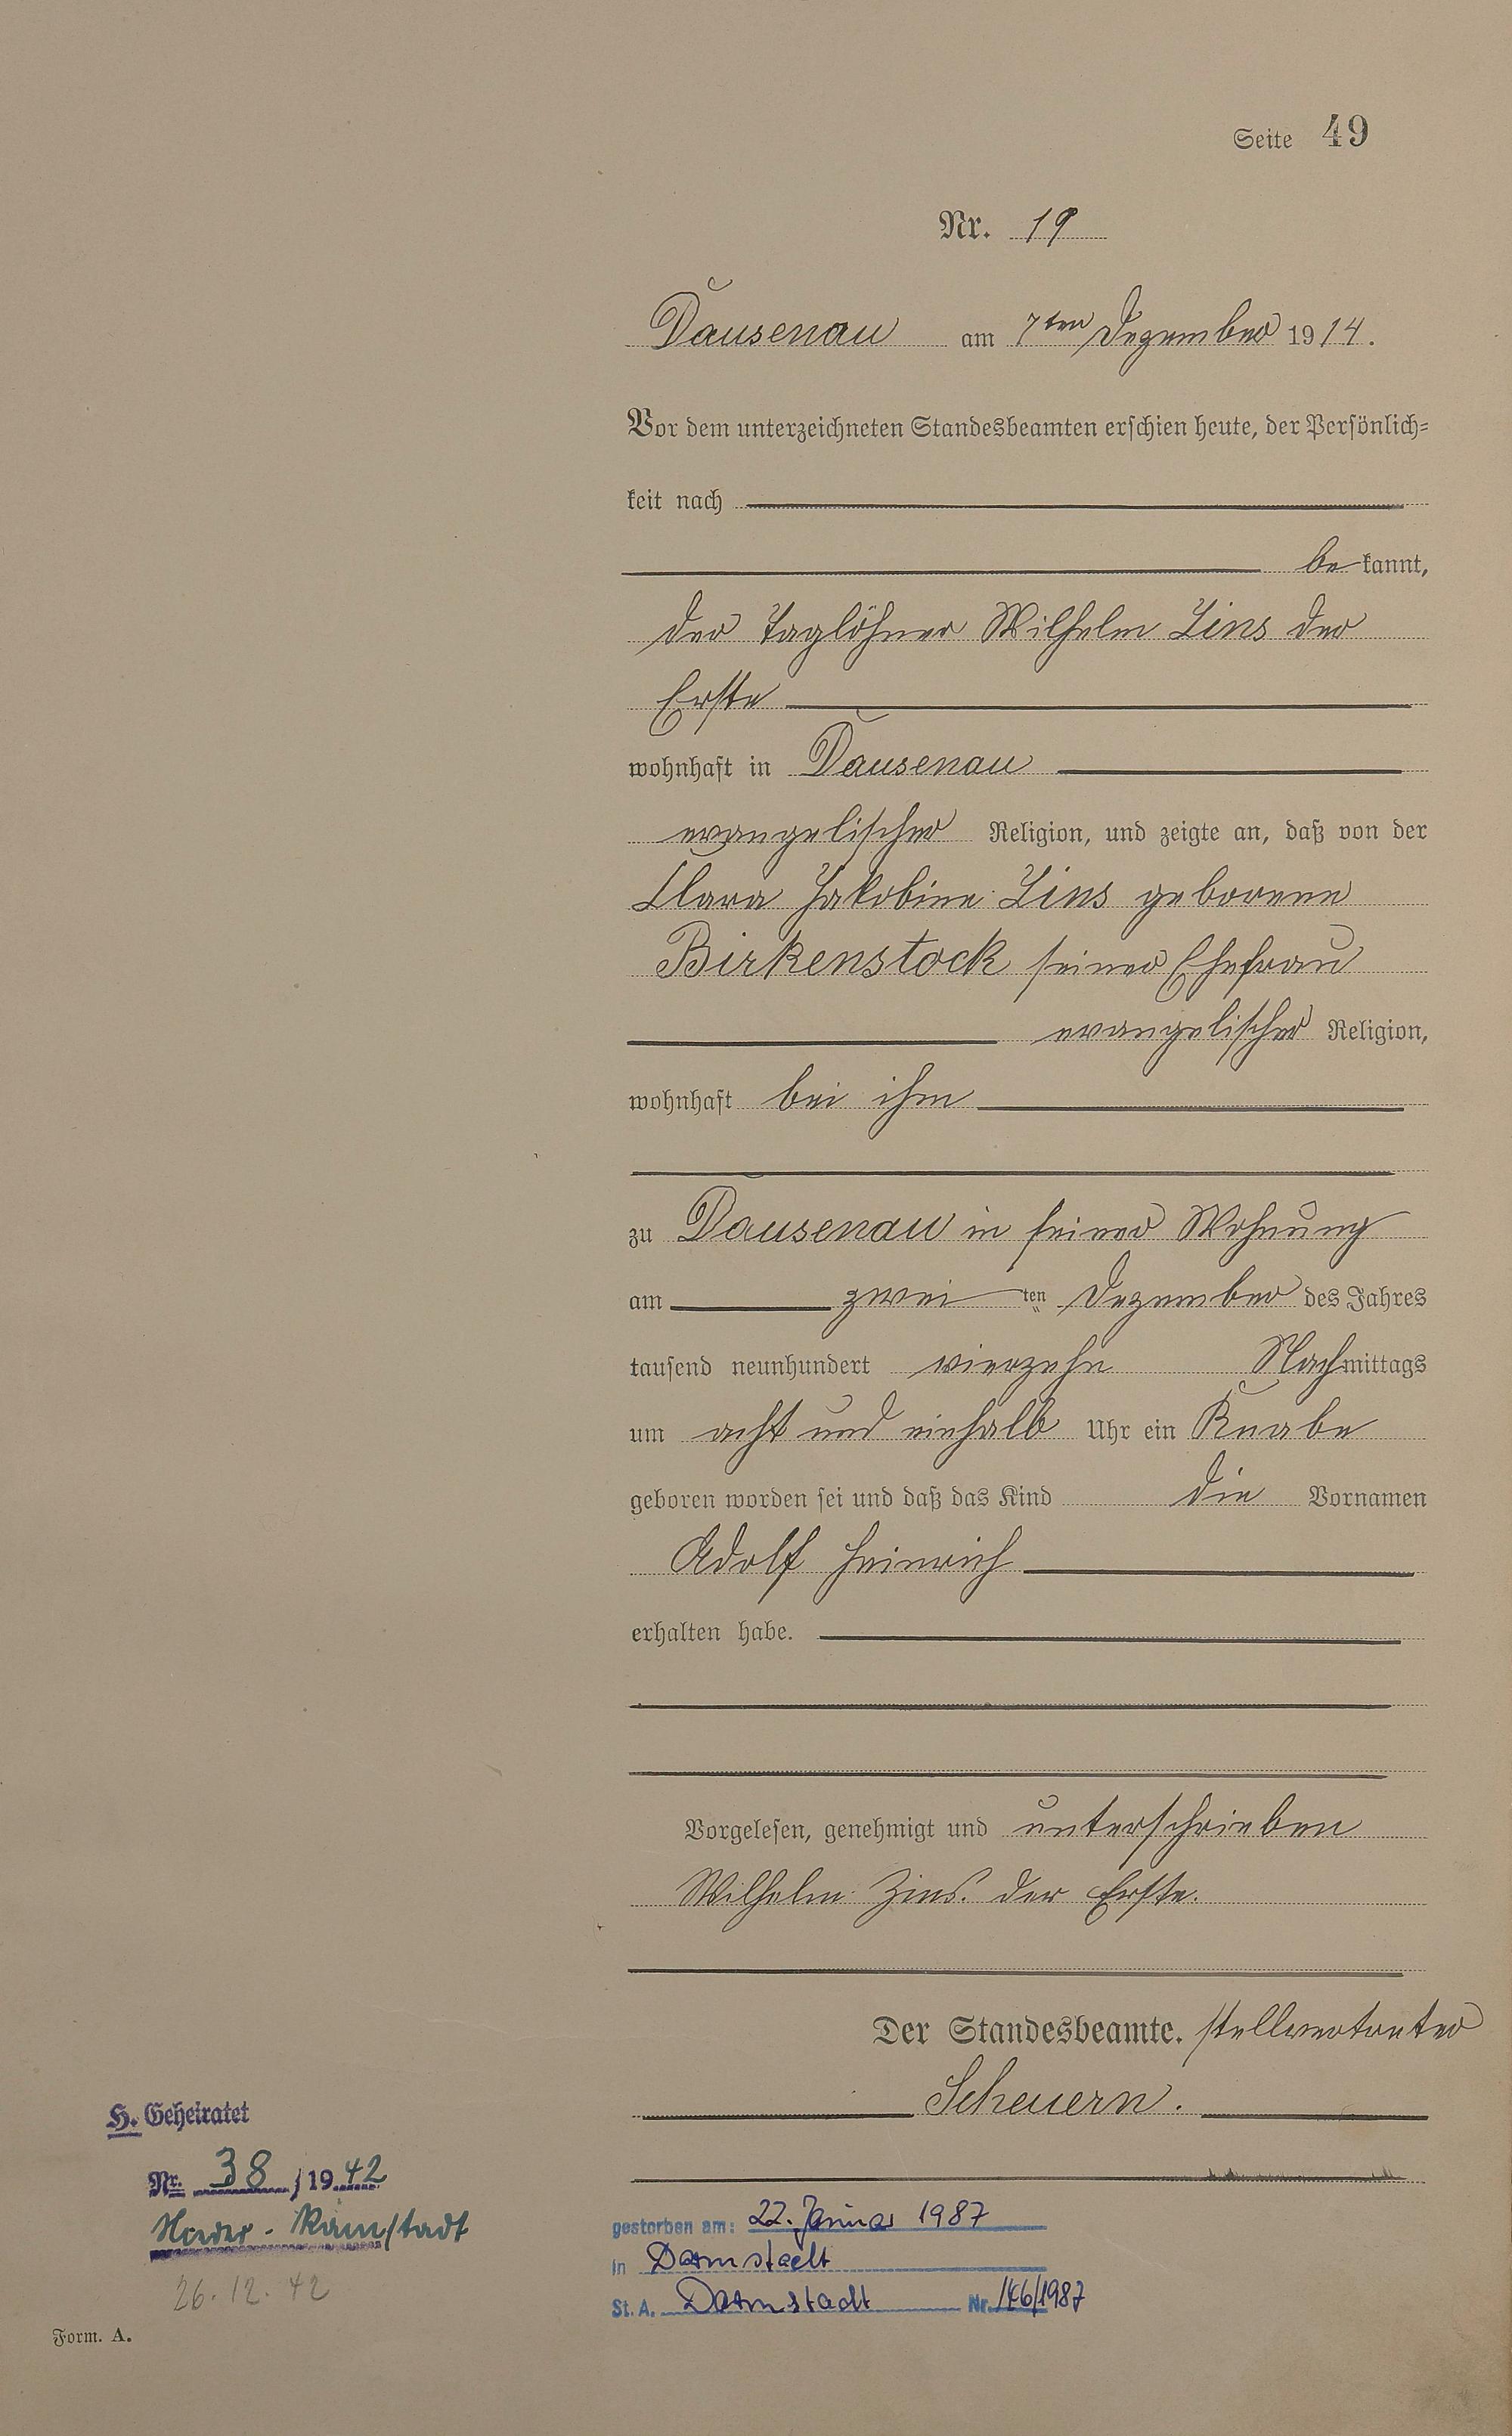 Seite 49
Nr. 19
Dausenau am 7ten Dezember 1914.
Vor dem unterzeichneten Standesbeamten erschien heute, der Persönlich=
keit nach
be kannt,
der Taglöhner Wilhelm Zins der
Erste
wohnhaft in Dausenau
evangelischer Religion, und zeigte an, daß von der
Clara Jakobine Zins geborene
Birkenstock seiner Ehefrau
evangelischer Religion,
wohnhaft bei ihm
zu Dausenau in seiner Wohnung
am zwei ten Dezember des Jahres
tausend neunhundert vierzehn Nachmittags
um acht und einhalb Uhr ein Knabe
geboren worden sei und daß das Kind die Vornamen
Adolf Heinrich
erhalten habe.
Vorgelesen, genehmigt und unterschrieben
Wilhelm Zins. der Erste.
Der Standesbeamte. stellvertreter
Scheuern.
H. Geheiratet
Nr. 38 / 1942
Nieder-Ramstadt
26.12.42
gestorben am: 22. Januar 1987
in Darmstadt
St. A. Darmstadt Nr. 146/1987
Form. A.